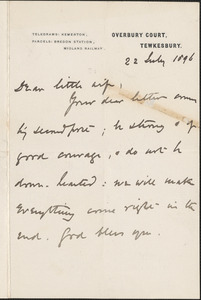 TELEGRAMS: KEMERTON.
PARCELS: BREDON STATION,
MIDLAND RAILWAY.
OVERBURY COURT,
TEWKESBURY.
22 July 1896
Dear little wife,
Your dear letter came
by second post; be strong & of
good courage, & do not be
down-hearted: we will make
everything come right in the
end. God bless you.